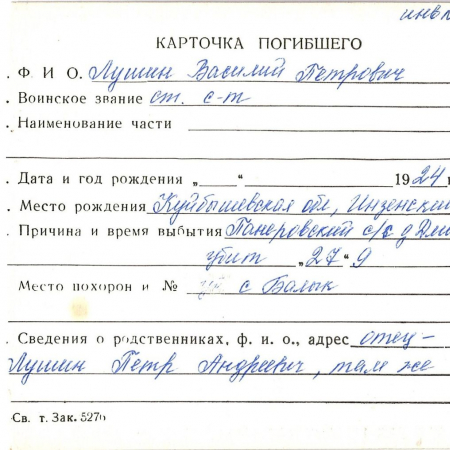 инв
КАРТОЧКА ПОГИБШЕГО
. Ф И О. Лушин Василий Петрович
. Воинское звание ст. с-т
. Наименование части
. Дата и год рождения „ “ 1924 г
. Место рождения Куйбышевская обл, Инзенский
. Причина и время выбытия с/с д
убит „27“ 9
Место похорон и № с Балык
. Сведения о родственниках, ф. и. о., адрес отец –
Лушин Петр Андреевич, там же
Св. т. Зак. 5276